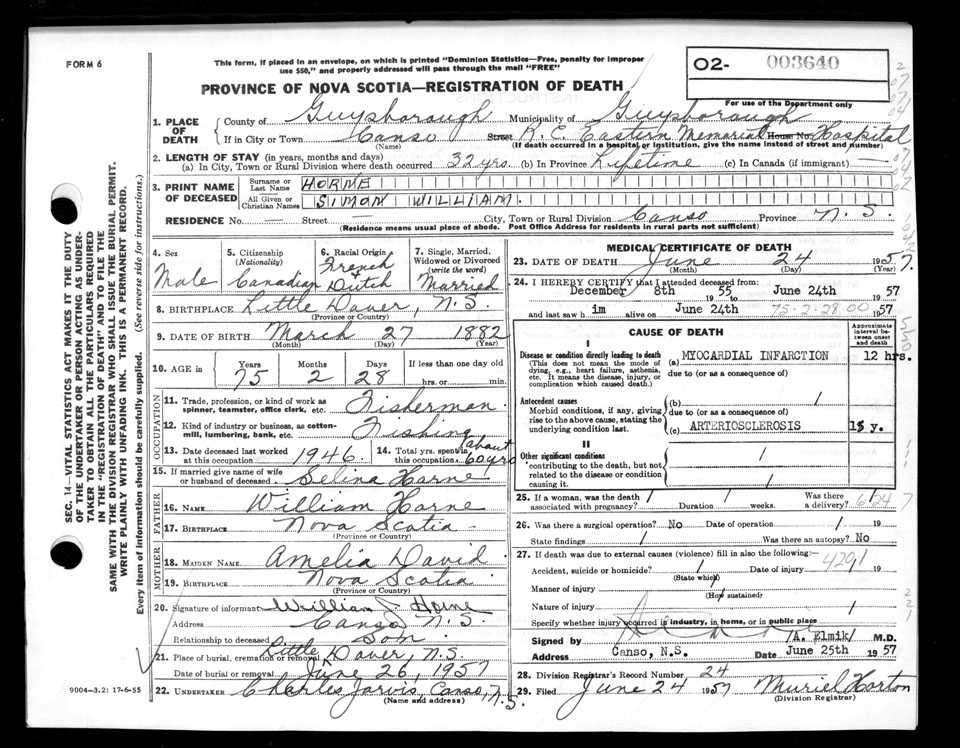 FORM 6
This form, if placed in an envelope, on which is printed "Dominion Statistics—Free, penalty for improper
use $50," and properly addressed will pass through the mail "FREE"
O2- 003640
For use of the Department only
PROVINCE OF NOVA SCOTIA—REGISTRATION OF DEATH
1. PLACE OF DEATH
County of Guysborough Municipality of Guysborough
If in City or Town Canso Street R. C. Eastern Memorial House No. Hospital
(Name) (If death occurred in a hospital or institution, give the name instead of street and number)
2. LENGTH OF STAY (in years, months and days)
(a) In City, Town or Rural Division where death occurred 32 yrs. (b) In Province Lifetime (c) In Canada (if immigrant) —
3. PRINT NAME OF DECEASED
Surname or Last Name HORNE
All Given or Christian Names SIMON WILLIAM.
RESIDENCE No. — Street — City, Town or Rural Division Canso Province N. S.
(Residence means usual place of abode. Post Office Address for residents in rural parts not sufficient)
4. Sex
Male
5. Citizenship (Nationality)
Canadian
6. Racial Origin
French
Dutch
7. Single, Married, Widowed or Divorced (write the word)
Married
8. BIRTHPLACE Little Dover, N.S.
(Province or Country)
9. DATE OF BIRTH March 27 1882
(Month) (Day) (Year)
10. AGE in
Years 75
Months 2
Days 28
If less than one day old
hrs. or min.
OCCUPATION
11. Trade, profession, or kind of work as spinner, teamster, office clerk, etc. Fisherman.
12. Kind of industry or business, as cotton-mill, lumbering, bank, etc. Fishing
13. Date deceased last worked at this occupation 1946.
14. Total yrs. spent in this occupation. about 60 yrs
15. If married give name of wife or husband of deceased. Selina Horne
FATHER
16. Name William Horne
17. Birthplace Nova Scotia
(Province or Country)
MOTHER
18. Maiden Name Amelia David
19. Birthplace Nova Scotia
(Province or Country)
20. Signature of informant William J. Horne
Address Canso N.S.
Relationship to deceased Son
21. Place of burial, cremation or removal Little Dover, N.S.
Date of burial or removal June 26, 1957
22. UNDERTAKER Charles Jarvis, Canso, N.S.
(Name and address)
9004—3.2: 17-6-55
MEDICAL CERTIFICATE OF DEATH
23. DATE OF DEATH June 24 1957.
(Month) (Day) (Year)
24. I HEREBY CERTIFY that I attended deceased from:
December 8th 1955 June 24th 1957
and last saw him alive on June 24th 75-2-28-00 1957
CAUSE OF DEATH
Approximate interval between onset and death
I
Disease or condition directly leading to death
(This does not mean the mode of dying, e.g., heart failure, asthenia, etc. It means the disease, injury, or complication which caused death.)
(a) MYOCARDIAL INFARCTION 12 hrs.
due to (or as a consequence of)
Antecedent causes
Morbid conditions, if any, giving rise to the above cause, stating the underlying condition last.
(b) /
due to (or as a consequence of)
(c) ARTERIOSCLEROSIS 15 y.
II
Other significant conditions
contributing to the death, but not related to the disease or condition causing it. /
25. If a woman, was the death associated with pregnancy? / Duration / weeks. Was there a delivery? /
26. Was there a surgical operation? No Date of operation / 19
State findings / Was there an autopsy? No
27. If death was due to external causes (violence) fill in also the following:—
Accident, suicide or homicide? / Date of injury 19
4201
(State which)
Manner of injury /
(How sustained)
Nature of injury /
Specify whether injury occurred in industry, in home, or in public place /
Signed by /A. Elmik/ M.D.
Address Canso, N.S. Date June 25th 1957
28. Division Registrar's Record Number 24
29. Filed June 24 1957 Muriel Horton
(Division Registrar)
SEC. 14—VITAL STATISTICS ACT MAKES IT THE DUTY
OF THE UNDERTAKER OR PERSON ACTING AS UNDER-
TAKER TO OBTAIN ALL THE PARTICULARS REQUIRED
IN THE "REGISTRATION OF DEATH" AND TO FILE THE
SAME WITH THE DIVISION REGISTRAR WHO SHALL ISSUE THE BURIAL PERMIT.
WRITE PLAINLY WITH UNFADING INK. THIS IS A PERMANENT RECORD.
Every item of information should be carefully supplied. (See reverse side for instructions.)